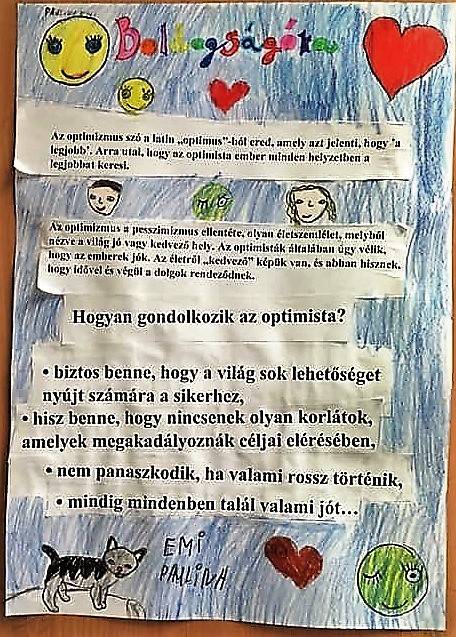 PAULINA
Boldogságóra
Az optimizmus szó a latin „optimus”-ból ered, amely azt jelenti, hogy 'a
legjobb'. Arra utal, hogy az optimista ember minden helyzetben a
legjobbat keresi.
Az optimizmus a pesszimizmus ellentéte, olyan életszemlélet, melyből
nézve a világ jó vagy kedvező hely. Az optimisták általában úgy vélik,
hogy az emberek jók. Az életről „kedvező” képük van, és abban hisznek,
hogy idővel és végül a dolgok rendeződnek.
Hogyan gondolkozik az optimista?
• biztos benne, hogy a világ sok lehetőséget
nyújt számára a sikerhez,
• hisz benne, hogy nincsenek olyan korlátok,
amelyek megakadályoznák céljai elérésében,
• nem panaszkodik, ha valami rossz történik,
• mindig mindenben talál valami jót…
EMI
PAULINA